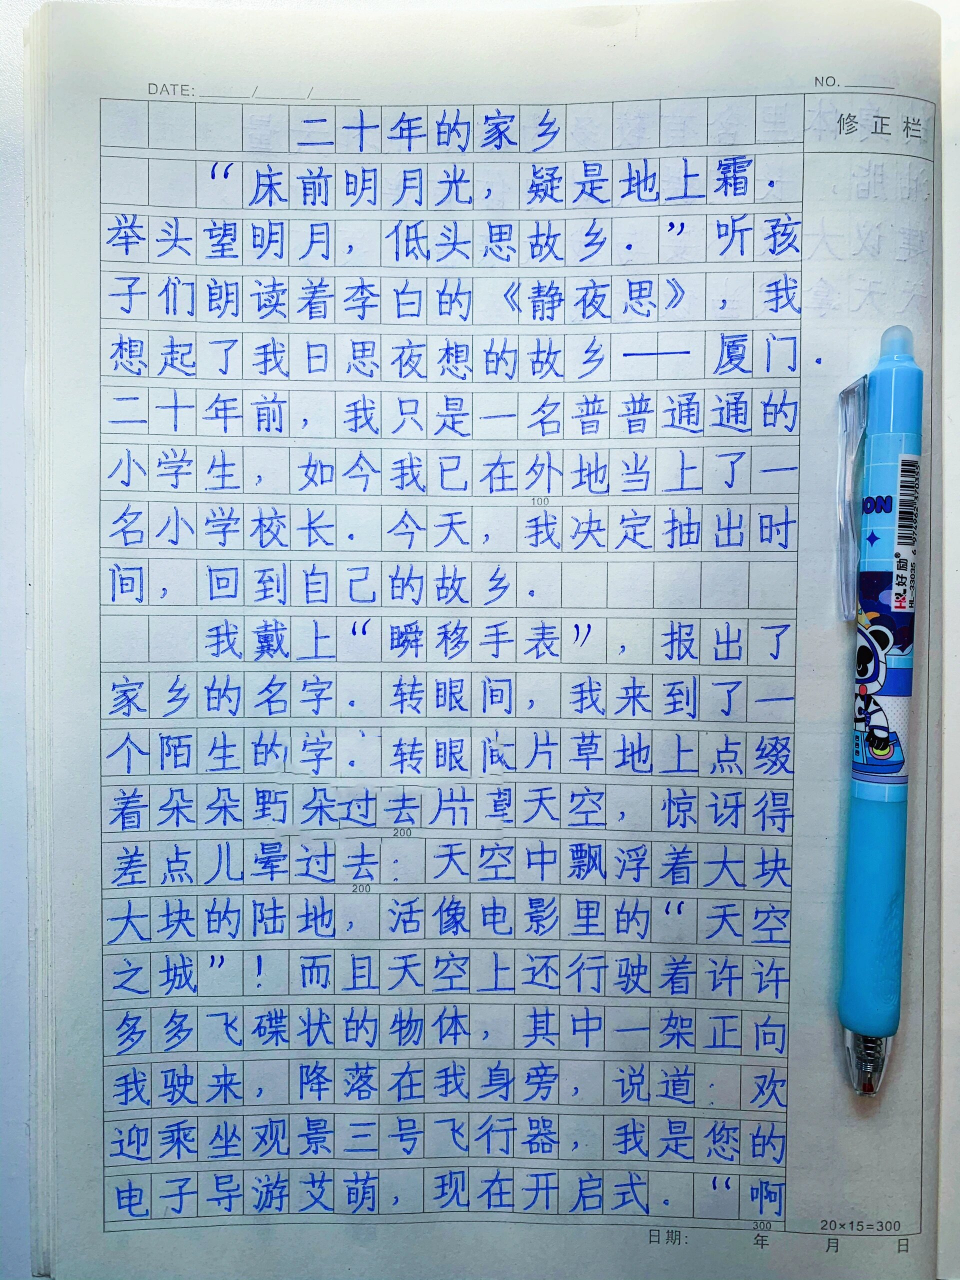 DATE: ____/____/____
NO. ____
修正栏
二十年的家乡
“床前明月光，疑是地上霜．
举头望明月，低头思故乡．”听孩
子们朗读着李白的《静夜思》，我
想起了我日思夜想的故乡——厦门．
二十年前，我只是一名普普通通的
小学生，如今我已在外地当上了一
100
名小学校长．今天，我决定抽出时
间，回到自己的故乡．
我戴上“瞬移手表”，报出了
家乡的名字．转眼间，我来到了一
个陌生的学．转眼间片草地上点缀
着朵朵野朵过去片望天空，惊讶得
200
差点儿晕过去：天空中飘浮着大块
200
大块的陆地，活像电影里的“天空
之城”！而且天空上还行驶着许许
多多飞碟状的物体，其中一架正向
我驶来，降落在我身旁，说道：欢
迎乘坐观景三号飞行器，我是您的
电子导游艾萌，现在开启式．“啊
300
20×15=300
日期： 年 月 日
ION
好励